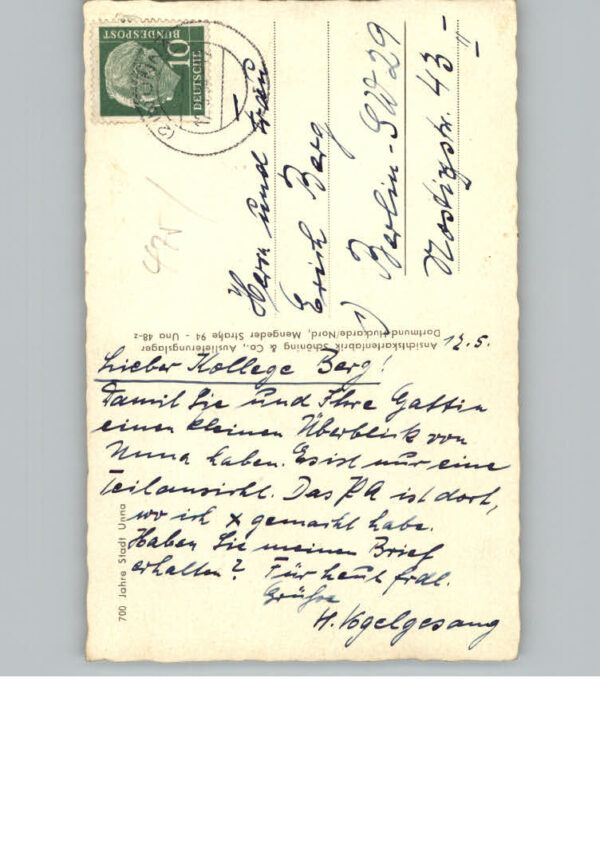 DEUTSCHE
BUNDESPOST
10
Herrn und Frau
Erich Berg
1) Berlin-SW 29
Nostizstr. 43-
475/
Ansichtskartenfabrik Schöning & Co., Auslieferungslager
Dortmund-Huckarde/Nord, Mengeder Straße 94 - Una 48-z
12.5.
Lieber Kollege Berg!
Damit Sie und Ihre Gattin
einen kleinen Überblick von
Unna haben. Es ist nur eine
Teilansicht. Das FA ist dort,
wo ich x gemacht habe.
Haben Sie meinen Brief
erhalten? Für heut frdl.
Grüße
H. Vogelgesang
700 Jahre Stadt Unna